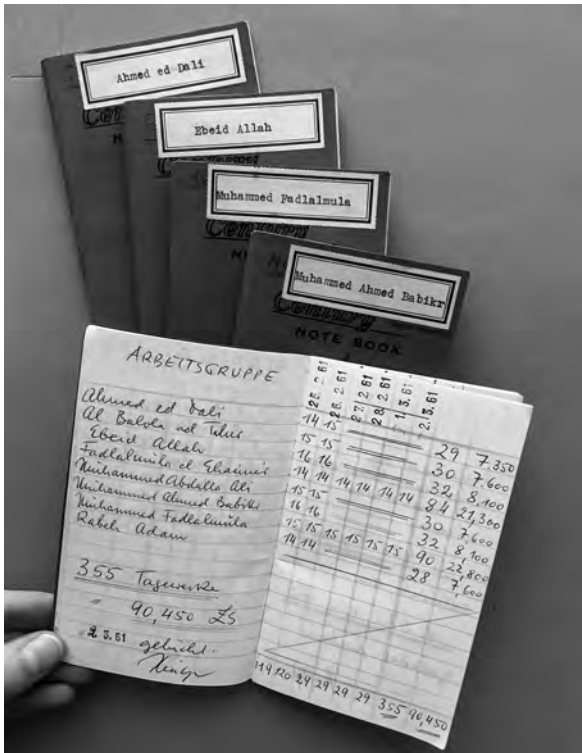 Ahmed ed Dali
Ebeid Allah
Century
Muhammed Fadlalmula
Century
Muhammed Ahmed Babikr
Century
NOTE BOOK
ARBEITSGRUPPE
Ahmed ed Dali
Al Balola ad
Ebeid Allah
Fadlalmula el
Muhammed Abdalla Ali
Muhammed Ahmed Babikr
Muhammed Fadlalmula
Rabeh Adam
355 Tagewerke
= 90,450 £S
2 3.61 gebucht.
25.2.61 26.2.61 27.2.61 28.2.61 1.3.61 2.3.61
14 15 29 7.350
15 15 30 7.600
16 16 32 8.100
14 14 14 14 14 14 84 21,300
15 15 30 7.600
16 16 32 8,100
15 15 15 15 15 15 90 22,800
14 14 28 7,600
119 120 29 29 29 29 355 90,450